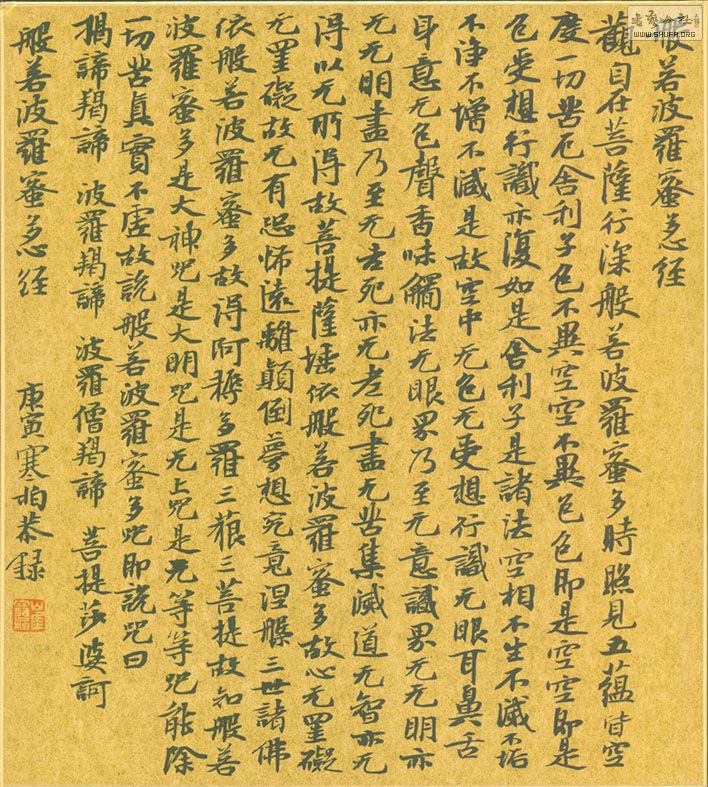 般若波羅蜜多心经
觀自在菩薩行深般若波羅蜜多時照見五蘊皆空
度一切苦厄舍利子色不異空空不異色色即是空空即是
色受想行識亦復如是舍利子是諸法空相不生不滅不垢
不淨不增不減是故空中无色无受想行識无眼耳鼻舌
身意无色聲香味觸法无眼界乃至无意識界无无明亦
无无明盡乃至无老死亦无老死盡无苦集滅道无智亦无
得以无所得故菩提薩埵依般若波羅蜜多故心无罣礙
无罣礙故无有恐怖遠離顛倒夢想究竟涅槃三世諸佛
依般若波羅蜜多故得阿耨多羅三藐三菩提故知般若
波羅蜜多是大神咒是大明咒是无上咒是无等等咒能除
一切苦真實不虛故說般若波羅蜜多咒即說咒曰
揭諦羯諦 波羅羯諦 波羅僧羯諦 菩提莎婆訶
般若波羅蜜多心经 庚寅寒柏恭録
WWW.SHUFA.ORG